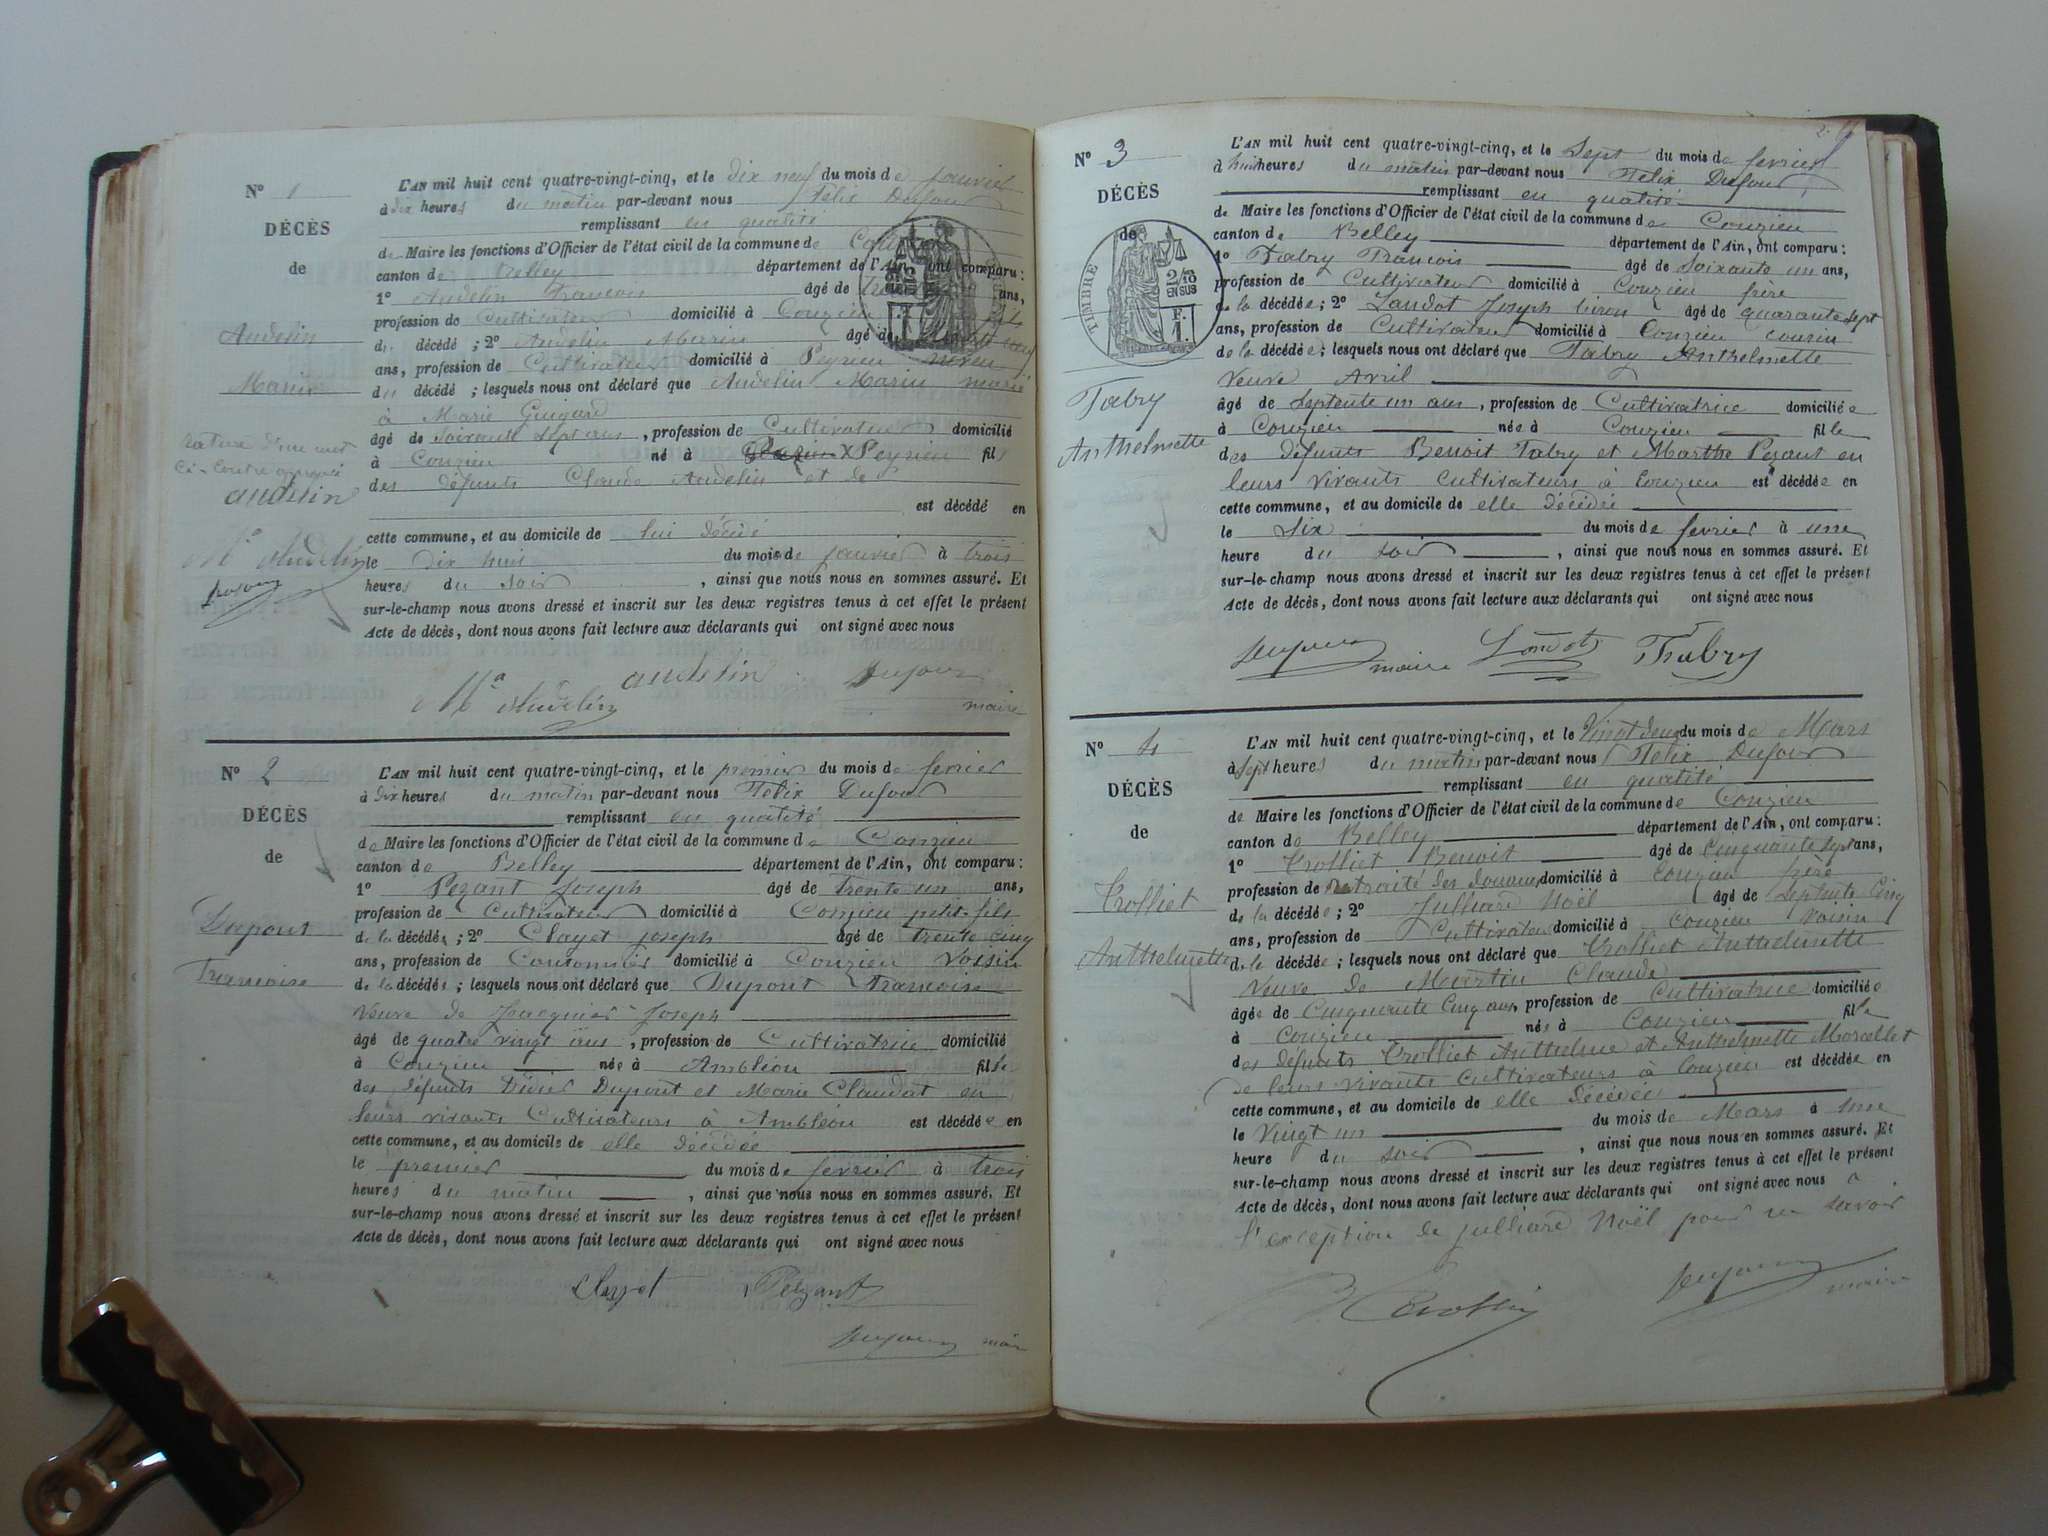 N° 1
DÉCÈS
de
Audelin
Marin
rature d'un mot
ci-contre approuvé
audelin
Mn Audelin
Dufour
L'AN mil huit cent quatre-vingt-cinq, et le dix neuf du mois de janvier
à dix heures du matin par-devant nous Felix Dufour
remplissant en qualité
de Maire les fonctions d'Officier de l'état civil de la commune de
canton de Belley département de l'Ain, ont comparu :
1° Audelin Francois âgé de ans,
profession de Cultivateur domicilié à Conzieu
du décédé ; 2° Audelin Marin âgé de
ans, profession de Cultivateur domicilié à Peyrieu neveu
du décédé ; lesquels nous ont déclaré que Audelin Marin marié
à Marie Guigard
âgé de soixante sept ans, profession de Cultivateur domicilié
à Conzieu né à X Peyrieu fils
des défunts Claude Audelin et de
est décédé en
cette commune, et au domicile de lui décédé
le dix huit du mois de janvier à trois
heures du soir, ainsi que nous nous en sommes assuré. Et
sur-le-champ nous avons dressé et inscrit sur les deux registres tenus à cet effet le présent
Acte de décès, dont nous avons fait lecture aux déclarants qui ont signé avec nous
Mn Audelin audelin Dufour
maire
N° 2
DÉCÈS
de
Dupont
Francoise
L'AN mil huit cent quatre-vingt-cinq, et le premier du mois de fevrier
à dix heures du matin par-devant nous Felix Dufour
remplissant en qualité
de Maire les fonctions d'Officier de l'état civil de la commune de Conzieu
canton de Belley département de l'Ain, ont comparu :
1° Pezant Joseph âgé de trente un ans,
profession de Cultivateur domicilié à Conzieu petit-fils
de la décédée ; 2° Clayet joseph âgé de trente cinq
ans, profession de Cantonnier domicilié à Conzieu voisin
de la décédée ; lesquels nous ont déclaré que Dupont Francoise
Veuve de Jacquier Joseph
âgé de quatre vingt ans, profession de Cultivatrice domicilié
à Conzieu née à Ambléon fille
des défunts Didier Dupont et Marie Claudat en
leurs vivants Cultivateurs à Ambléon est décédée en
cette commune, et au domicile de elle décédée
le premier du mois de fevrier à trois
heures du matin, ainsi que nous nous en sommes assuré. Et
sur-le-champ nous avons dressé et inscrit sur les deux registres tenus à cet effet le présent
Acte de décès, dont nous avons fait lecture aux déclarants qui ont signé avec nous
Clayet Pezant
Dufour maire
N° 3
DÉCÈS
de
TIMBRE
2/10
EN SUS
F. 1
Fabry
Anthelmette
L'AN mil huit cent quatre-vingt-cinq, et le Sept du mois de fevrier
à huit heures du matin par-devant nous Felix Dufour
remplissant en qualité
de Maire les fonctions d'Officier de l'état civil de la commune de Conzieu
canton de Belley département de l'Ain, ont comparu :
1° Fabry Francois âgé de Soixante un ans,
profession de Cultivateur domicilié à Conzieu frère
de la décédée ; 2° Landot Joseph âgé de quarante sept
ans, profession de Cultivateur domicilié à Conzieu cousin
de la décédée ; lesquels nous ont déclaré que Fabry Anthelmette
Veuve Avril
âgé de septente un ans, profession de Cultivatrice domiciliée
à Conzieu née à Conzieu fille
des défunts Benoit Fabry et Marthe Pezant en
leurs vivants Cultivateurs à Conzieu est décédée en
cette commune, et au domicile de elle décédée
le Six du mois de fevrier à une
heure du soir, ainsi que nous nous en sommes assuré. Et
sur-le-champ nous avons dressé et inscrit sur les deux registres tenus à cet effet le présent
Acte de décès, dont nous avons fait lecture aux déclarants qui ont signé avec nous
Dufour maire Landot Fabry
N° 4
DÉCÈS
de
Trolliet
Anthelmette
L'AN mil huit cent quatre-vingt-cinq, et le Vingt deux du mois de Mars
à sept heures du matin par-devant nous Felix Dufour
remplissant en qualité
de Maire les fonctions d'Officier de l'état civil de la commune de Conzieu
canton de Belley département de l'Ain, ont comparu :
1° Trolliet Benoit âgé de Cinquante sept ans,
profession de Retraité des douanes domicilié à Conzieu frère
de la décédée ; 2° Julliard Noël âgé de septente Cinq
ans, profession de Cultivateur domicilié à Conzieu voisin
de la décédée ; lesquels nous ont déclaré que Trolliet Anthelmette
Veuve de Martin Claude
âgée de Cinquante Cinq ans, profession de Cultivatrice domiciliée
à Conzieu née à Conzieu fille
des défunts Trolliet Anthelme et Anthelmette Marcellet
de leurs vivants Cultivateurs à Conzieu est décédée en
cette commune, et au domicile de elle décédée
le Vingt un du mois de Mars à une
heure du soir, ainsi que nous nous en sommes assuré. Et
sur-le-champ nous avons dressé et inscrit sur les deux registres tenus à cet effet le présent
Acte de décès, dont nous avons fait lecture aux déclarants qui ont signé avec nous à
l'exception de Julliard Noël pour ne savoir
B Trolliet Dufour maire